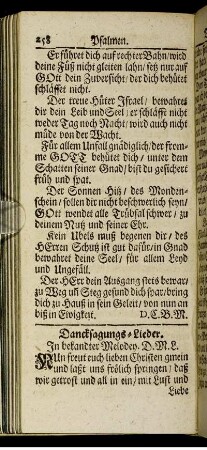 258 Psalmen.
Er führet dich auf rechter Bahn/ wird
deine Füß nicht gleiten lahn/ setz nur auf
GOtt dein Zuversicht/ der dich behütet
schläffet nicht.
Der treue Hüter Israel/ bewahret
dir dein Leib und Seel/ er schläfft nicht
weder Tag noch Nacht/ wird auch nicht
müde von der Wacht.
Für allem Unfall gnädiglich/ der from-
me GOTT behütet dich/ unter dem
Schatten seiner Gnad/ bist du gesichert
früh und spat.
Der Sonnen Hitz/ des Monden-
schein/ sollen dir nicht beschwerlich seyn/
GOtt wendet alle Trübsal schwer/ zu
deinem Nutz und seiner Ehr.
Kein Ubels muß begegen dir/ des
HErren Schutz ist gut dafür/ in Gnad
bewahret deine Seel/ für allem Leyd
und Ungefäll.
Der HErr dein Ausgang stets bewar/
zu Weg uñ Steg gesund dich spar/ bring
dich zu Hauß in sein Geleit/ von nun an
biß in Ewigkeit. D.C.B.M.
Dancksagungs-Lieder.
In bekandter Melodey. D.M.L.
NUn freut euch lieben Christen gmein
und laßt uns frölich springen/ daß
wir getrost und all in ein/ mit Lust und
Liebe